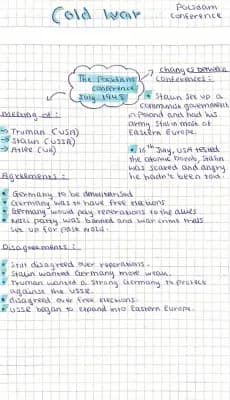 Cold war
Potsdam
Conference
The Potsdam
conference
July 1945
Changes between
conferences:
• Stalin set up a
communist government
in Poland and had his
army. Stalin most of
Eastern Europe.
• 16th July, USA tested
the atomic bomb, Stalin
was scared and angry
he hadn't been told.
Meeting of:
→ Truman (USA)
→ Stalin (USSR)
→ Atlee (UK)
Agreements:
• Germany to be demilitarised
• Germany was to have free elections
• Germany would pay reparations to the allies
• Nazi party was banned and war crime trials
set up for past
Disagreements:
• Still disagreed over reperations.
• Stalin wanted Germany more weak.
• Truman wanted a strong Germany to protect
against the USSR.
• disagreed over free elections.
• USSR began to expand into Eastern Europe.